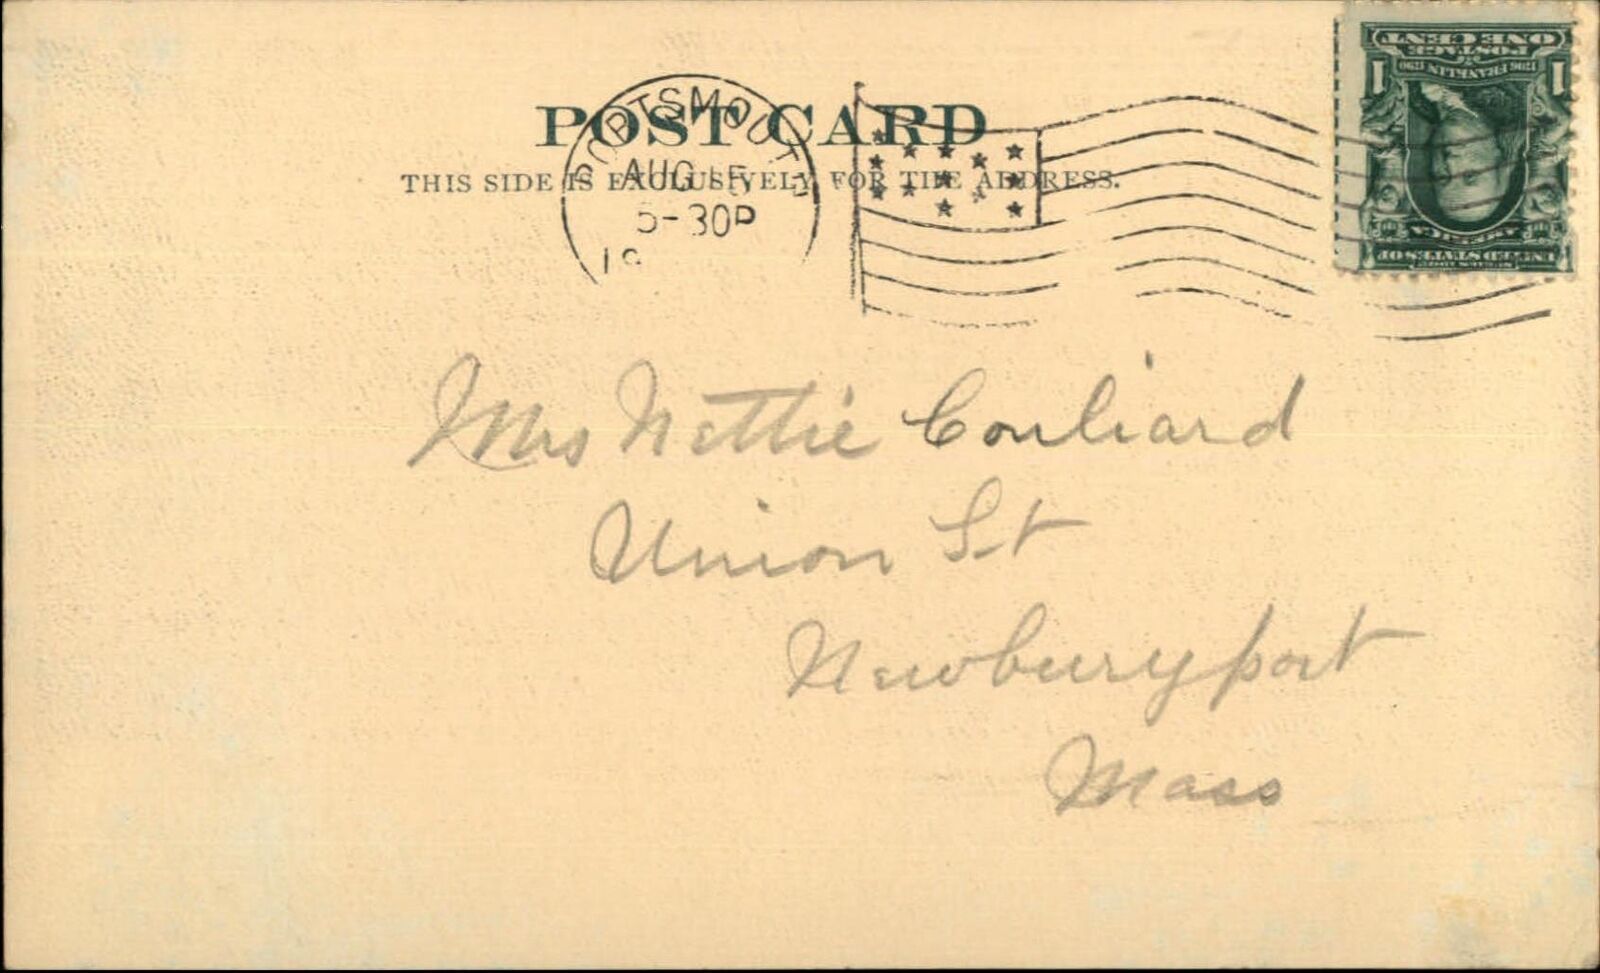 POST CARD
THIS SIDE IS EXCLUSIVELY FOR THE ADDRESS.
PORTSMOUTH
AUG 15
5-30P
19
ONE CENT
POSTAGE
1706 FRANKLIN 1790
1 1
UNITED STATES OF
AMERICA
Mrs Nettie Couliard
Union St
Newburyport
Mass